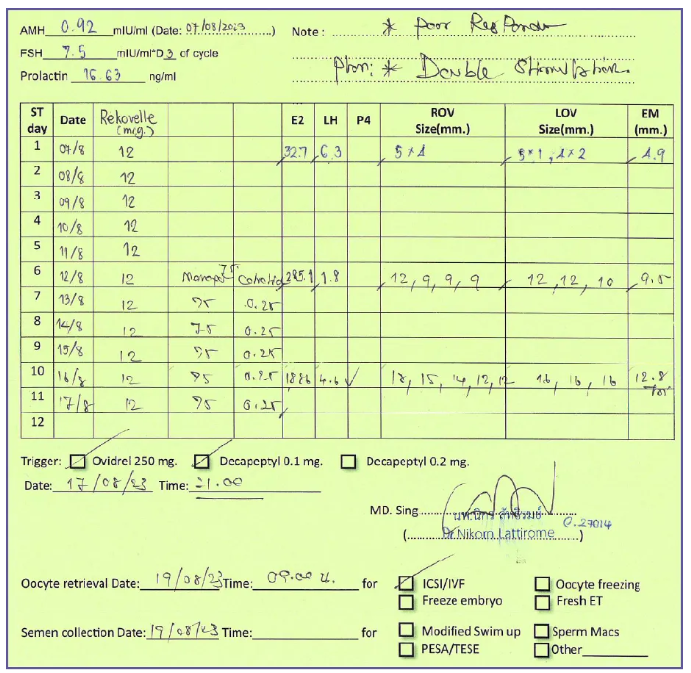 AMH 0.92 mIU/ml (Date: 07/08/2023) Note: * Poor Responder
FSH 7.5 mIU/ml*D3 of cycle
Prolactin 16.63 ng/ml Plan: * Double Stimulation.
ST day Date Rekovelle (mcg.) E2 LH P4 ROV Size(mm.) LOV Size(mm.) EM (mm.)
1 07/8 12 32.7 6.3 5*4 5*1, 4*2 4.9
2 08/8 12
3 09/8 12
4 10/8 12
5 11/8 12
6 12/8 12 75 285.1 1.8 12, 9, 9, 9 12, 12, 10 9.5
7 13/8 12 75 0.25
8 14/8 12 75 0.25
9 15/8 12 75 0.25
10 16/8 12 75 0.25 1886 4.6 ✓ 18, 15, 14, 12, 12 16, 16, 16 12.8
11 17/8 12 75 0.25
12
Trigger: Ovidrel 250 mg. Decapeptyl 0.1 mg. Decapeptyl 0.2 mg.
Date: 17/08/23 Time: 21.00
MD. Sing
ว.27014
(Dr Nikom Lattirome)
Oocyte retrieval Date: 19/08/23 Time: 09.00 น. for ICSI/IVF Oocyte freezing
Freeze embryo Fresh ET
Semen collection Date: 19/08/23 Time: for Modified Swim up Sperm Macs
PESA/TESE Other